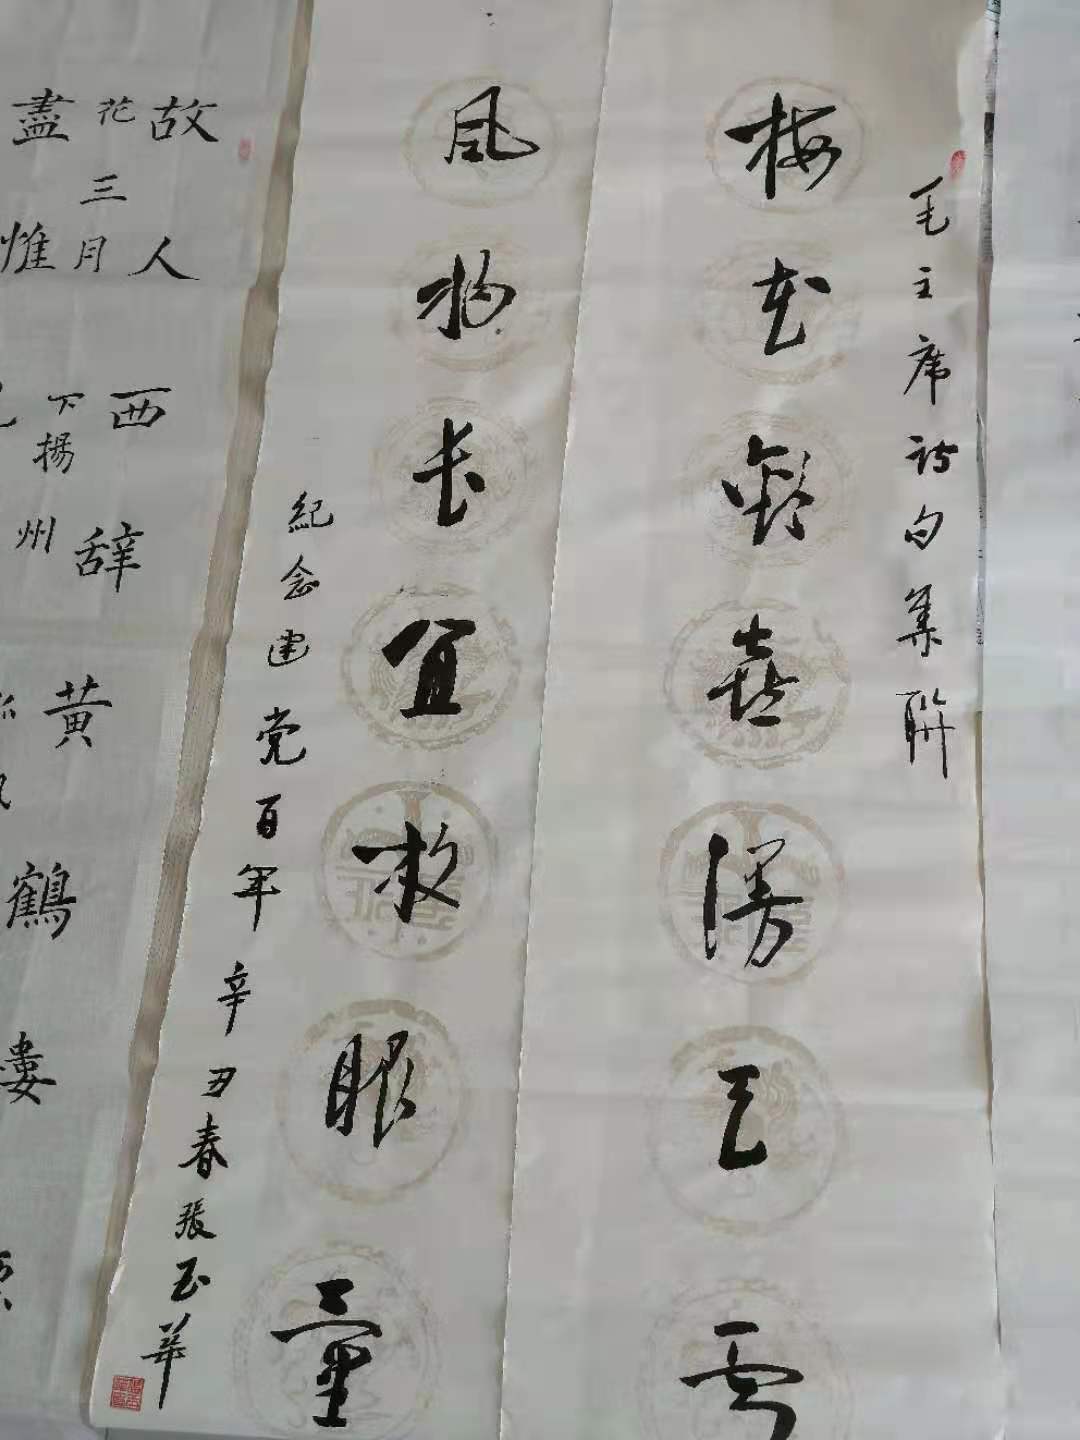 毛主席诗句集聯
梅花歡喜漫天雪
风物长宜放眼量
紀念建党百年 辛丑春 張玉華
故人西辞黄鶴楼
花三月下揚州
盡惟